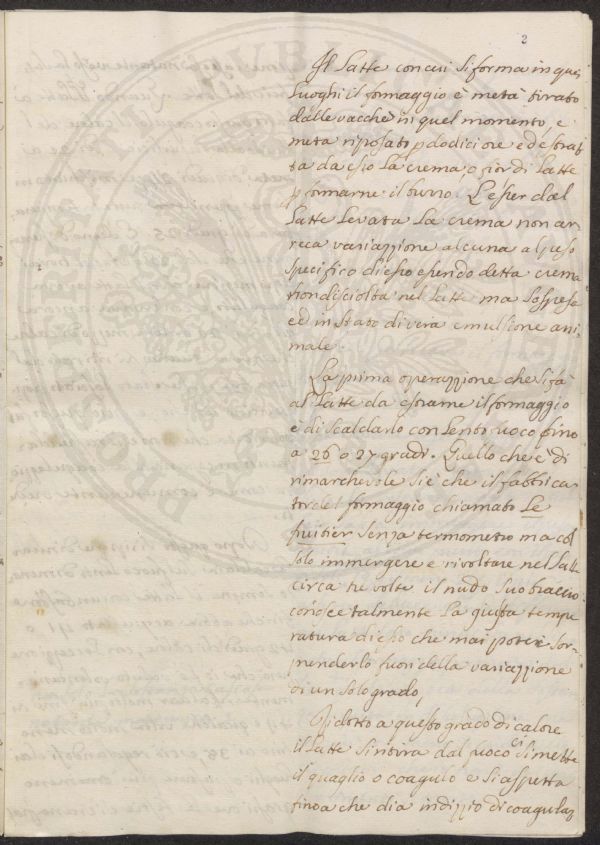 2
Il Latte con cui si forma in que,
Luoghi il formaggio è metà tirato
dalle vacche in quel momento, e
metà riposato p dodici ore ed estrat
ta da esso La crema o fior di Latte
p formarne il burro. L'esser dal
Latte Levata La crema non ar
reca variazzione alcuna al peso
specifico di esso essendo detta crema
non disciolta nel Latte ma sospesa
ed in stato di vera emulsione ani,
male.
La prima operazzione che si fà
al Latte da esrarne il formaggio
e di scaldarlo con Lento fuoco fino
a 26 o 27 gradi. Quello che è di
rimarchevole si è che il fabbrica
tor del formaggio chiamato Le
fruitier senza termometro ma col
solo immergere e rivoltare nel Latte
circa tre volte il nudo suo braccio
conosce talmente La giusta tempe
ratura di esso che mai potei sor,
prenderlo fuori della variazzione
di un solo grado,
Ridotto a questo grado di calore
il Latte si ritira dal fuoco si mette
il quaglio o coagulo e si aspetta
fino a che dia indizzio di coagulaz